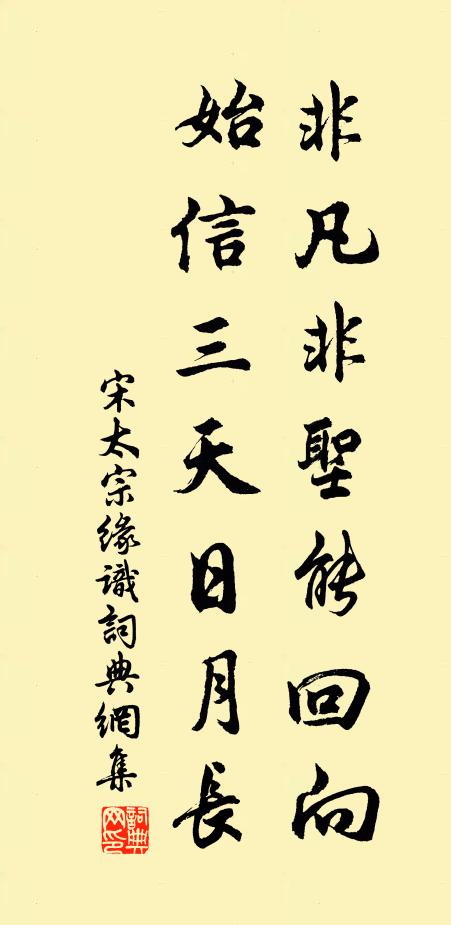 非凡非聖能回向
始信三天日月長
宋太宗緣識詞典網集
詞典網印